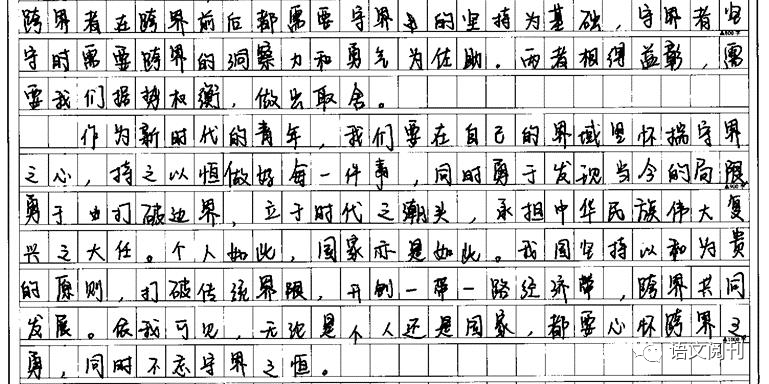 跨界者在跨界前后都需要守界者的坚持为基础，守界者坚
▲800字
守时需要跨界的洞察力和勇气为佐助。两者相得益彰，需
要我们据势权衡，做出取舍。
作为新时代的青年，我们要在自己的界域里怀揣守界
之心，持之以恒做好每一件事，同时勇于发现当今的局限
▲900字
勇于去打破边界，立于时代之潮头，承担中华民族伟大复
兴之大任。个人如此，国家亦是如此。我国坚持以和为贵
的原则，打破传统界限，开创一带一路经济带，跨界共同
发展。依我可见，无论是个人还是国家，都要心怀跨界之
▲1000字
勇，同时不忘守界之恒。
语文阅刊